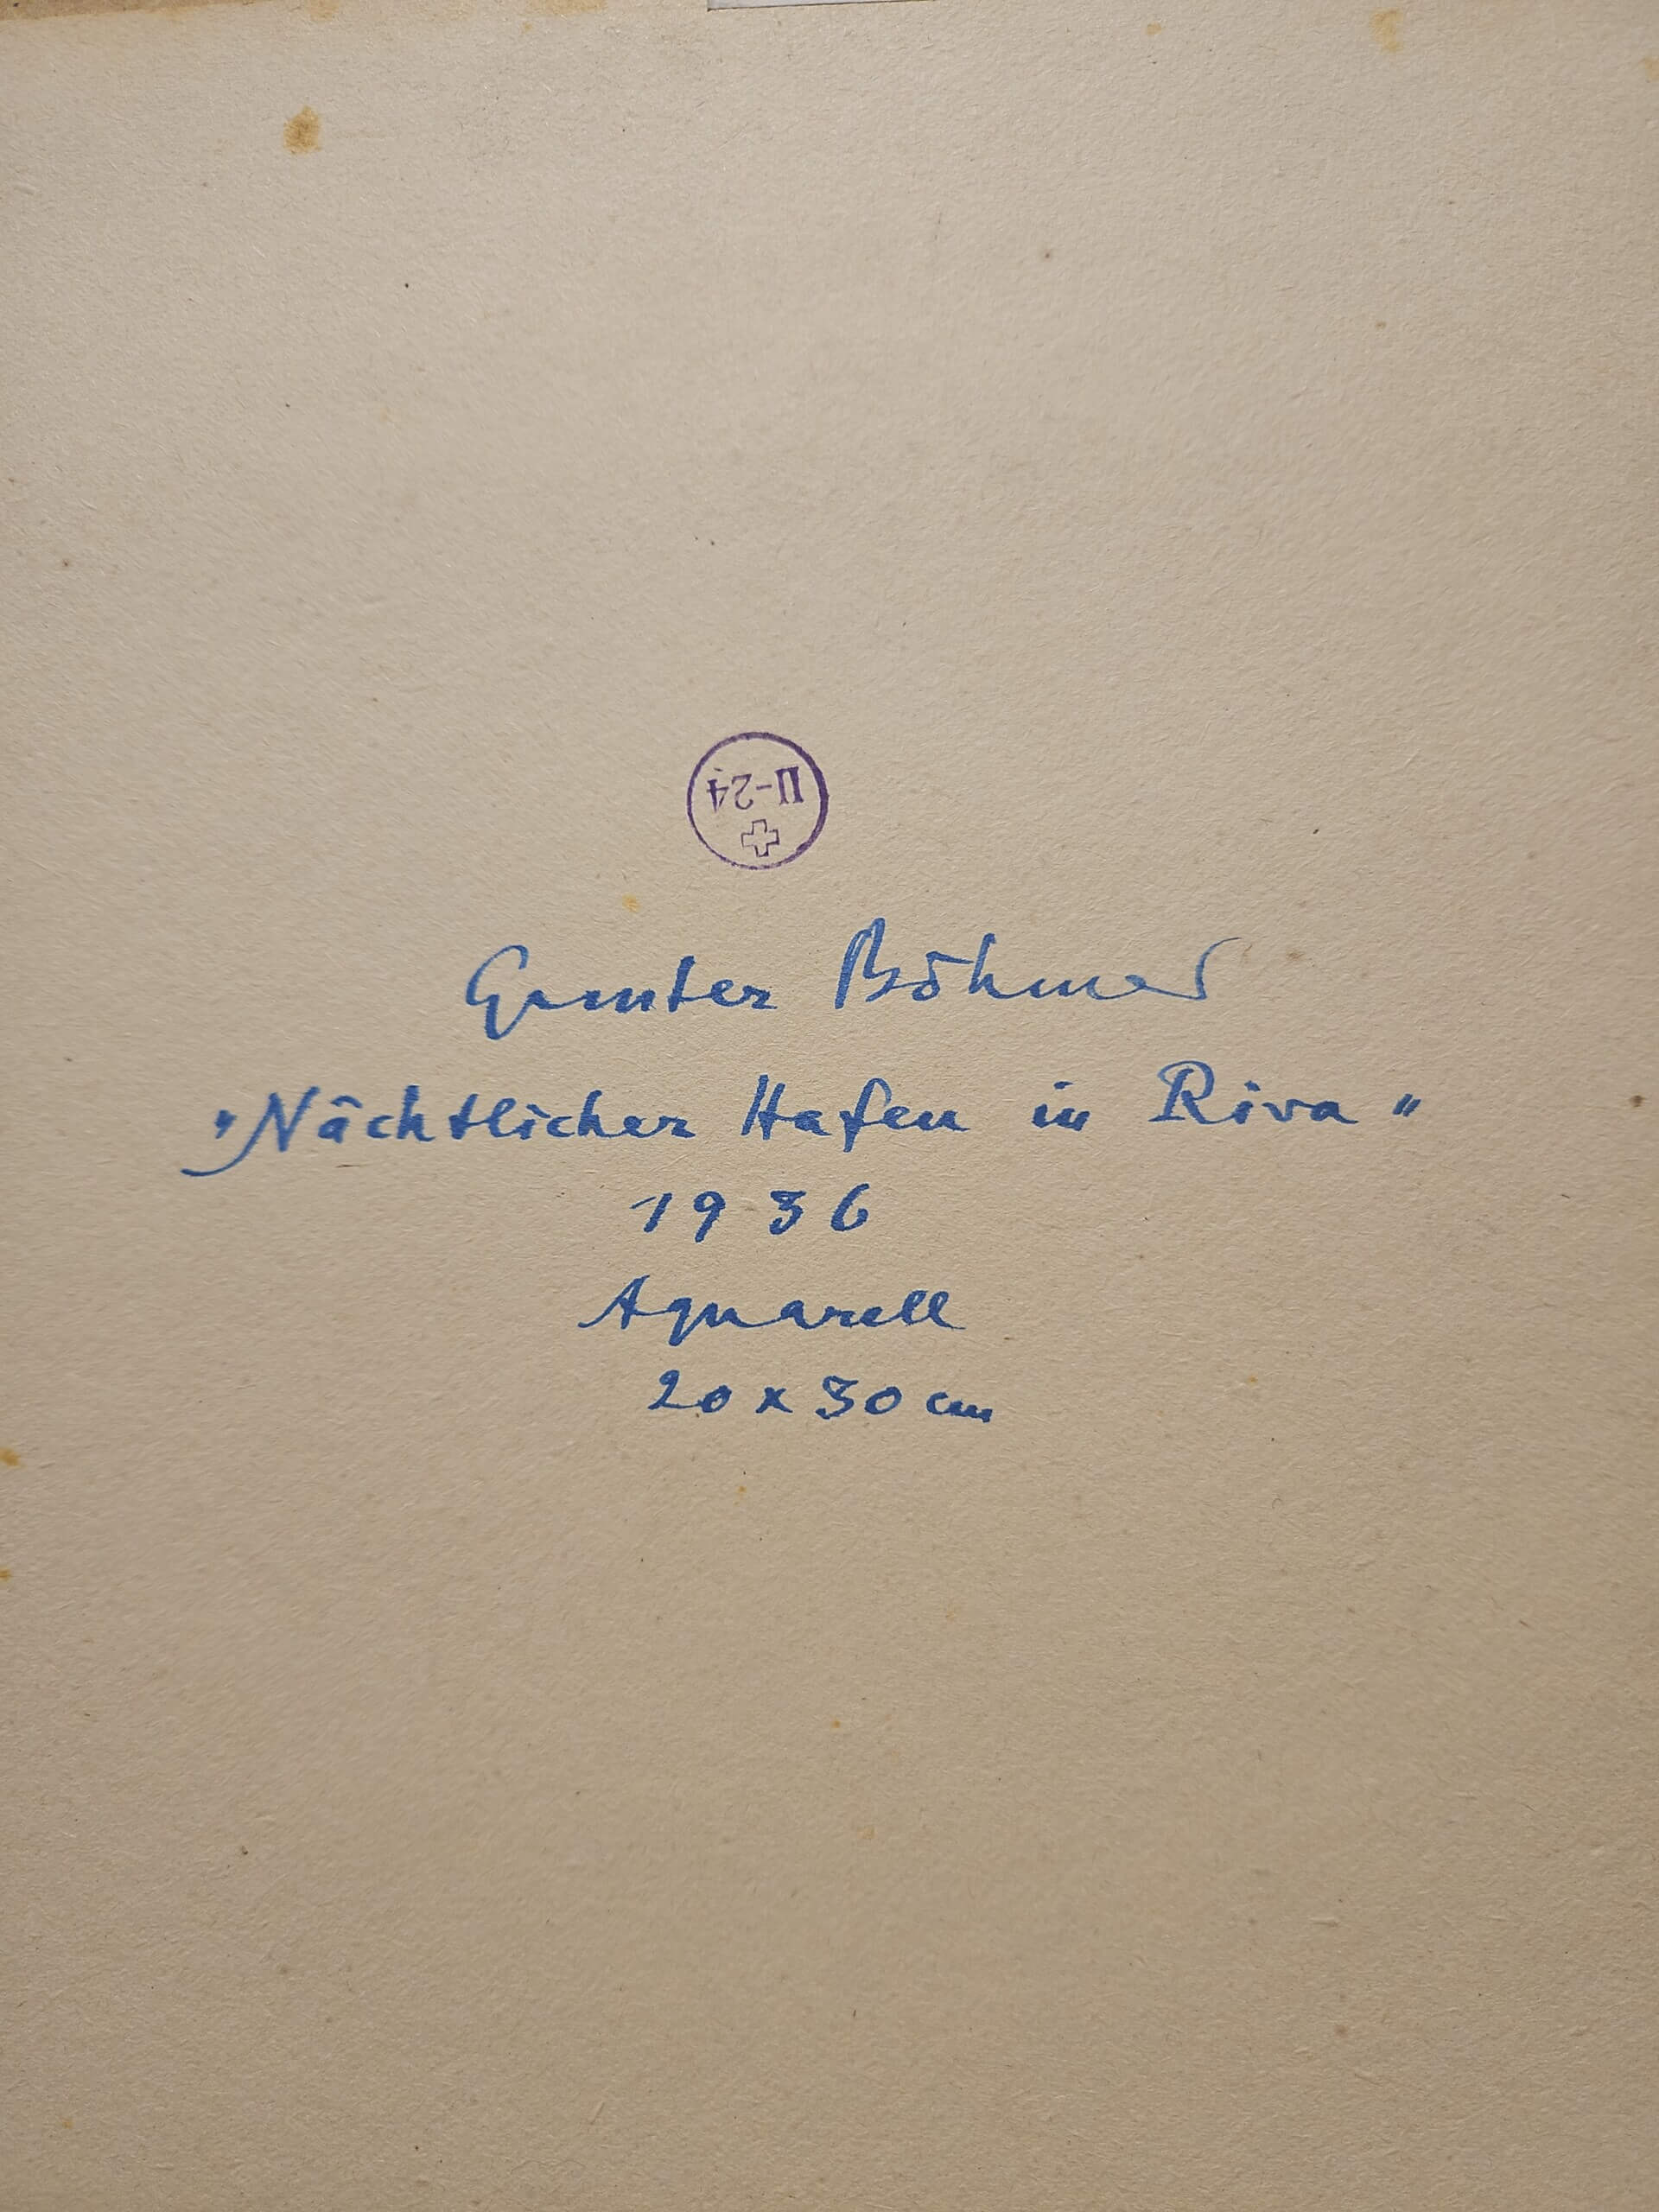 II-24
Gunter Böhmer
"Nächtlicher Hafen in Riva"
1936
Aquarell
20 x 30 cm